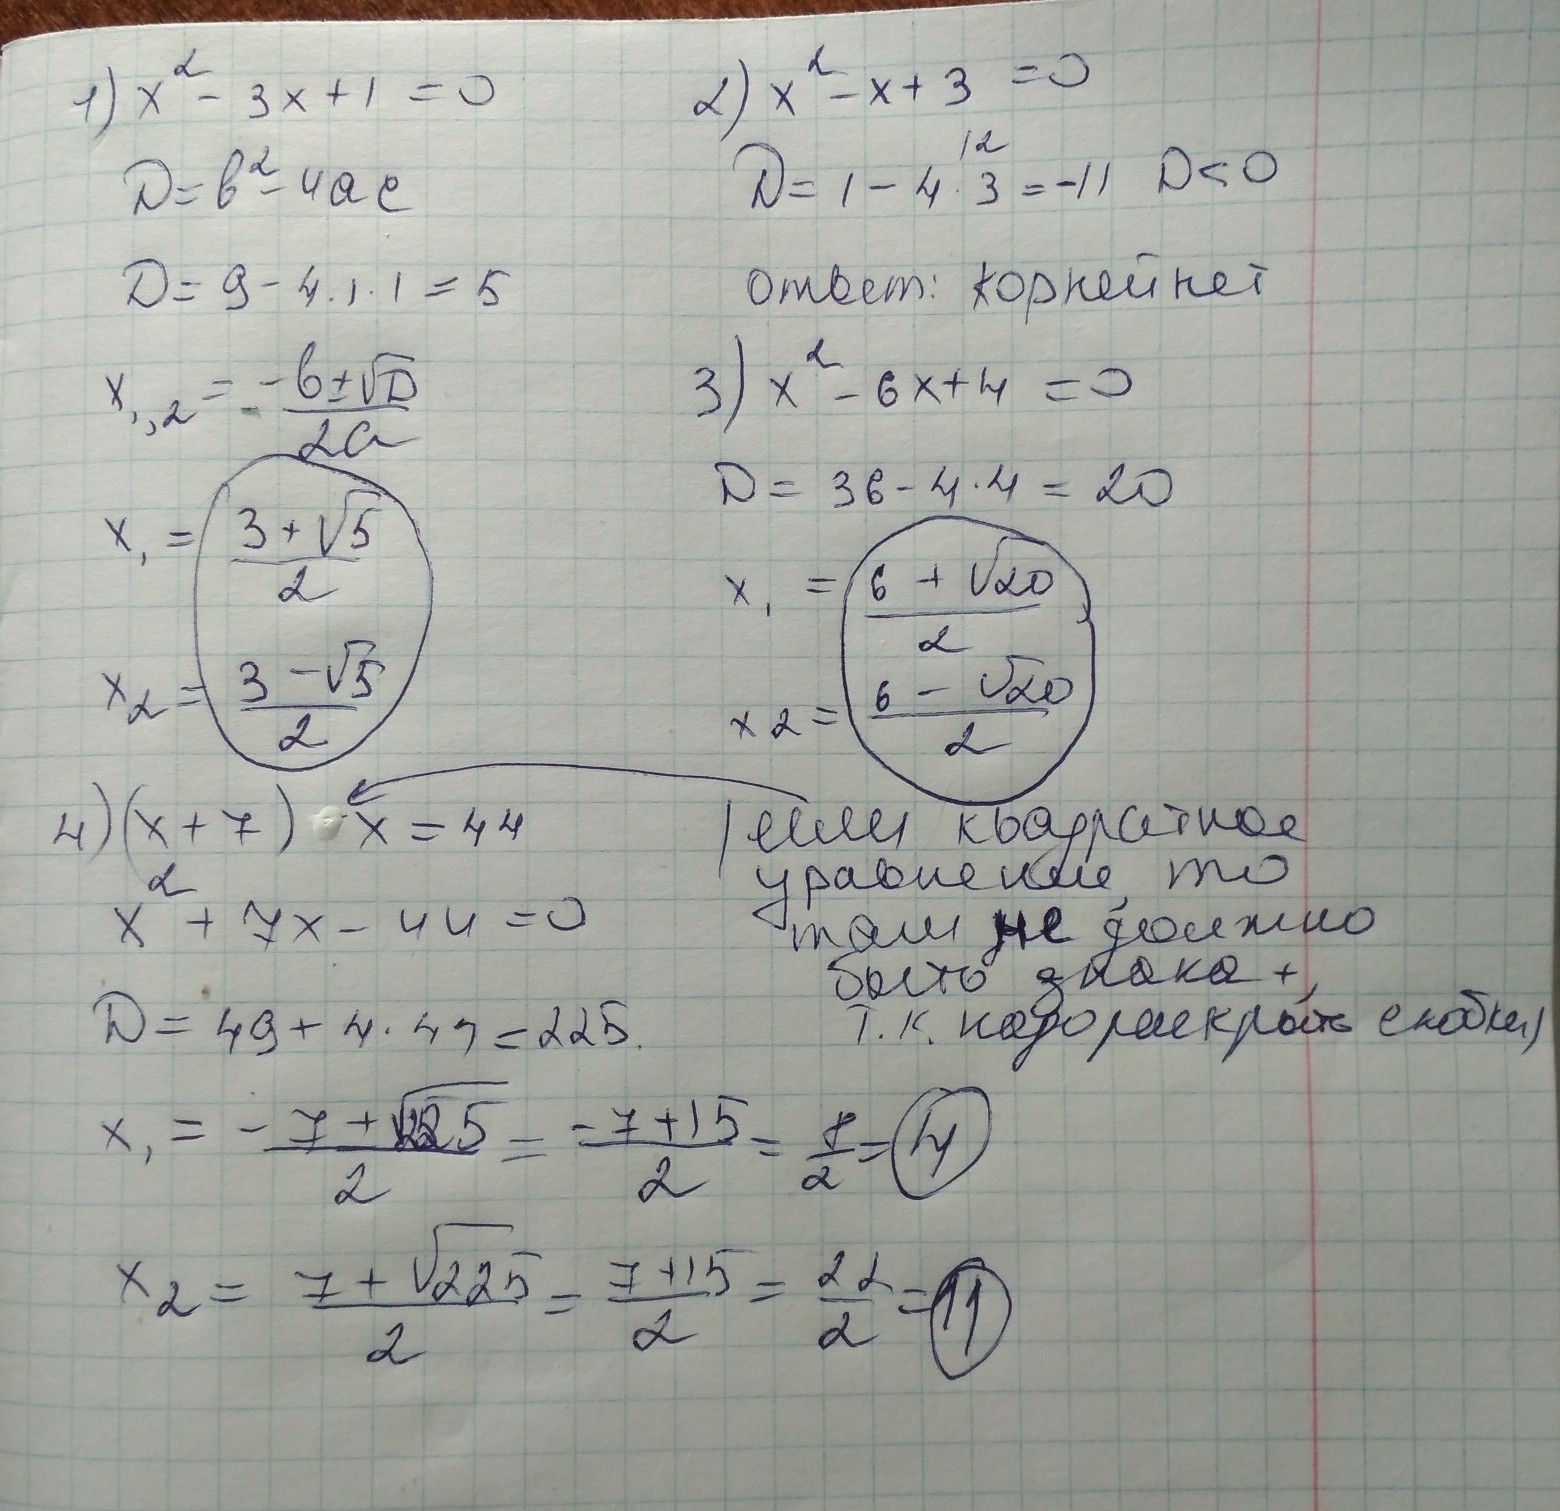 1) x² - 3x + 1 = 0
D = b² - 4ac
D = 9 - 4·1·1 = 5
x₁,₂ = -b±√D / 2a
x₁ = 3+√5 / 2
x₂ = 3-√5 / 2
2) x² - x + 3 = 0
12
D = 1 - 4·3 = -11 D<0
ответ: корней нет
3) x² - 6x + 4 = 0
D = 36 - 4·4 = 20
x₁ = 6 + √20 / 2
x2 = 6 - √20 / 2
4) (x+7) x = 44
x² + 7x - 44 = 0
D = 49 + 4·44 = 225.
x₁ = -7+√225 / 2 = -7+15 / 2 = 8/2 = 4
x₂ = 7+√225 / 2 = 7+15 / 2 = 22/2 = 11
квадратное
уравнение, то
там не должно
быть знака +,
т.к. надо раскрыть скобки)